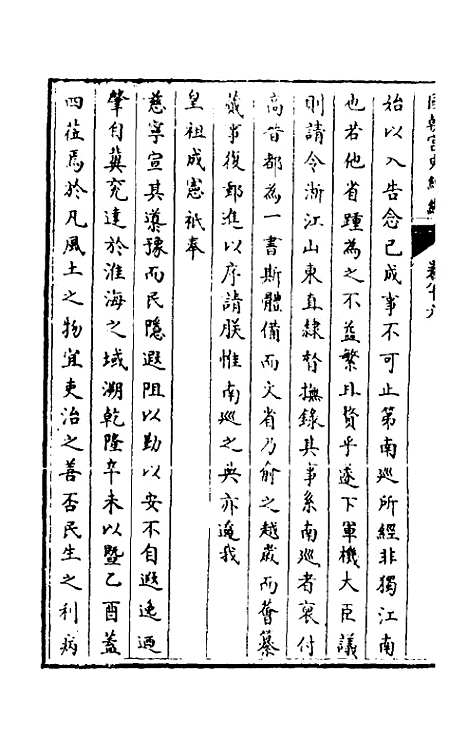 始以入告念已成事不可止第南巡所經非獨江南
也若他省踵為之不益繁且費乎遂下軍機大臣議
則請令浙江山東直隸督撫錄其事系南巡者裒付
高晉都為一書斯體備而文省乃俞之越歲而薈纂
蕆事復郵進以序請朕惟南巡之典亦遵我
皇祖成憲祇奉
慈寧宣其遵豫而民隱遐阻以勤以安不自遐逸迺
肇自冀兖達於淮海之域溯乾隆辛未以暨乙酉蓋
四蒞焉於凡風土之物宜吏治之善否民生之利病